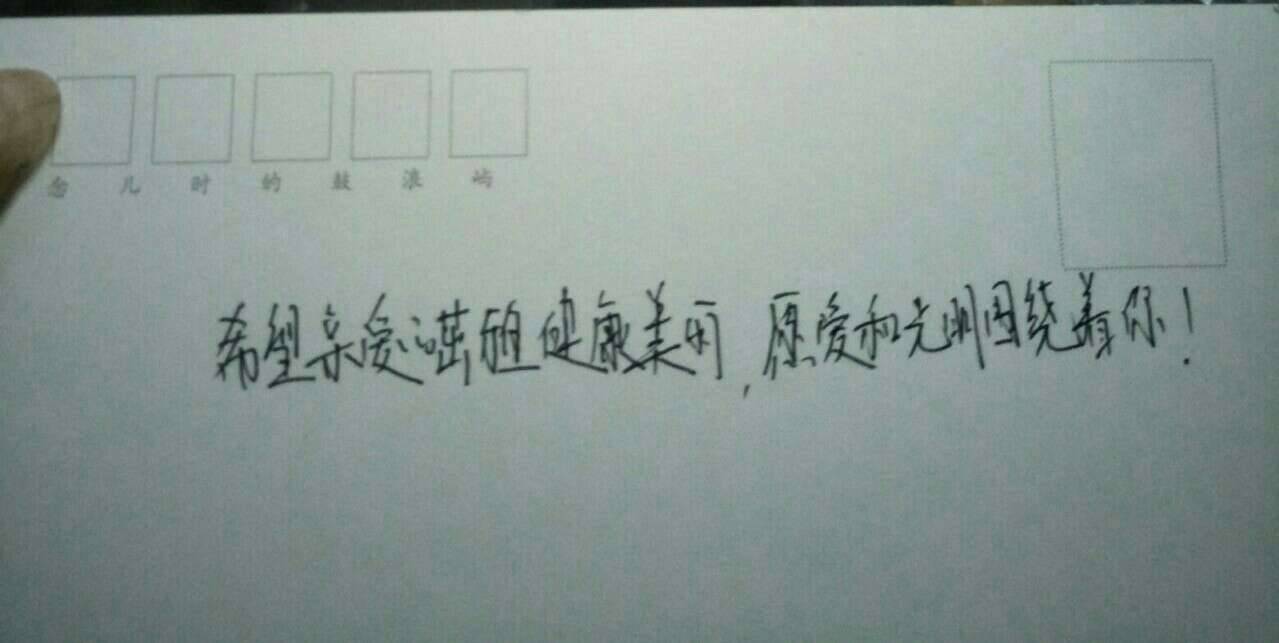 念儿时的鼓浪屿
希望亲爱健康美丽,愿爱和光明围绕着你!